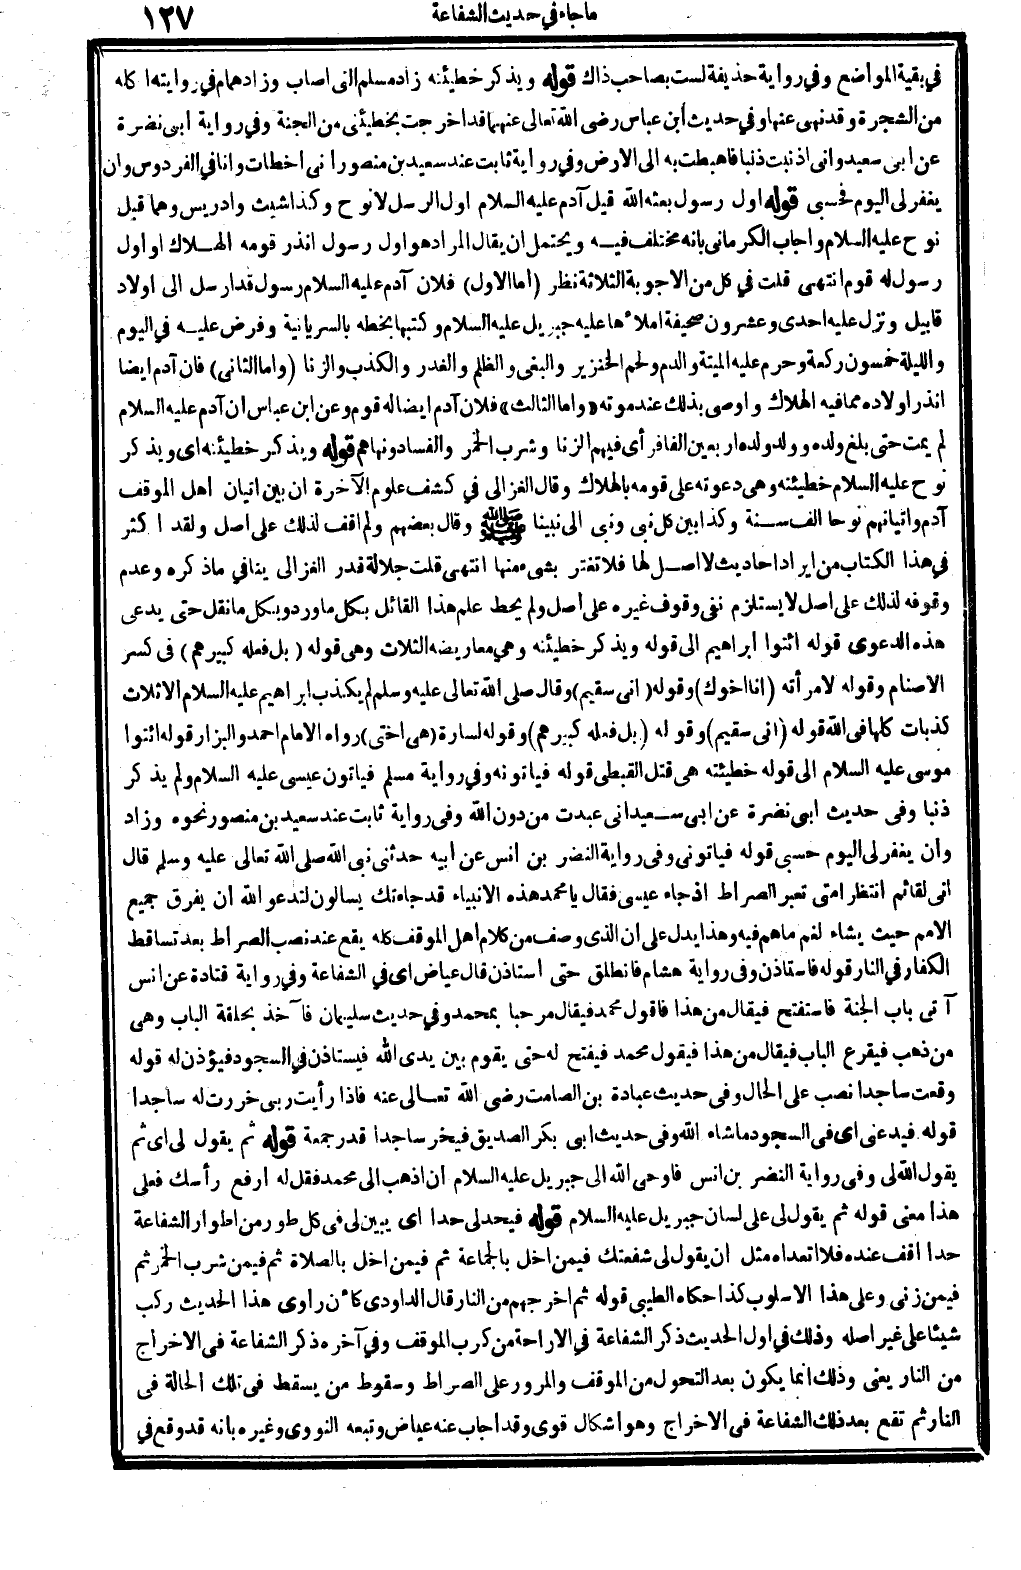 ما جاء في حديث الشفاعة ١٢٧
في بقية المواضع وفي رواية حذيفة لست بصاحب ذاك قوله ويذكر خطيئته زاد مسلم التي اصاب وزاد همام في روايته اكله
من الشجرة وقد نهى عنها وفي حديث ابن عباس رضى الله تعالى عنهما قد اخرجت بخطيئتي من الجنة وفي رواية ابي نضرة
عن ابي سعيد واني اذنبت ذنبا فاهبطت به الى الارض وفي رواية ثابت عند سعيد بن منصور اني اخطات وانا في الفردوس وان
يغفر لي اليوم فحسبي قوله اول رسول بعثه الله قيل آدم عليه السلام اول الرسل لا نوح وكذا شيث وادريس وهما قبل
نوح عليه السلام واجاب الكرماني بانه مختلف فيه ويحتمل ان يقال المراد هو اول رسول انذر قومه الهلاك او اول
رسول له قوم انتهى قلت في كل من الاجوبة الثلاثة نظر (اما الاول) فلان آدم عليه السلام رسول قد ارسل الى اولاد
قابيل ونزل عليه احدى وعشرون صحيفة املاها عليه جبريل عليه السلام وكتبها بخطه بالسريانية وفرض عليه في اليوم
والليلة خمسون ركعة وحرم عليه الميتة والدم ولحم الخنزير والبغي والظلم والغدر والكذب والزنا (واما الثاني) فان آدم ايضا
انذر اولاده مما فيه الهلاك واوصى بذلك عند موته «واما الثالث» فلان آدم ايضا له قوم وعن ابن عباس ان آدم عليه السلام
لم يمت حتى بلغ ولده وولد ولده اربعين الفا فرأى فيهم الزنا وشرب الخمر والفساد ونهاهم قوله ويذكر خطيئته اى ويذكر
نوح عليه السلام خطيئته وهي دعوته على قومه بالهلاك وقال الغزالي في كشف علوم الآخرة ان بين اتيان اهل الموقف
آدم واتيانهم نوحا الف سنة وكذا بين كل نبي ونبي الى نبينا ﷺ وقال بعضهم ولم اقف لذلك على اصل ولقد اكثر
في هذا الكتاب من ايراد احاديث لا اصل لها فلا تغتر بشيء منها انتهى قلت جلالة قدر الغزالي ينافي ماذكره وعدم
وقوفه لذلك على اصل لا يستلزم نفي وقوف غيره على اصل ولم يحط علم هذا القائل بكل ما ورد وبكل ما نقل حتى يدعى
هذه الدعوى قوله ائتوا ابراهيم الى قوله ويذكر خطيئته وهي معاريضه الثلاث وهي قوله (بل فعله كبيرهم) في كسر
الاصنام وقوله لامرأته (انا اخوك) وقوله (اني سقيم) وقال صلى الله تعالى عليه وسلم لم يكذب ابراهيم عليه السلام الا ثلاث
كذبات كلها في الله قوله (اني سقيم) وقوله (بل فعله كبيرهم) وقوله لسارة (هي اختي) رواه الامام احمد والبزار قوله ائتوا
موسى عليه السلام الى قوله خطيئته هي قتل القبطي قوله فياتونه وفي رواية مسلم فياتون عيسى عليه السلام ولم يذكر
ذنبا وفي حديث ابي نضرة عن ابي سعيد اني عبدت من دون الله وفي رواية ثابت عند سعيد بن منصور نحوه وزاد
وأن يغفر لي اليوم حسبي قوله فياتوني وفي رواية النضر بن انس عن ابيه حدثني نبي الله صلى الله تعالى عليه وسلم قال
اني لقائم انتظر امتي تعبر الصراط اذ جاء عيسى فقال يا محمد هذه الانبياء قد جاءتك يسالون لتدعو الله ان يفرق جميع
الامم حيث يشاء لغم ماهم فيه وهذا يدل على ان الذى وصف من كلام اهل الموقف كله يقع عند نصب الصراط بعد تساقط
الكفار في النار قوله فاستاذن وفي رواية هشام فانطلق حتى استاذن قال عياض اى في الشفاعة وفي رواية قتادة عن انس
آتي باب الجنة فاستفتح فيقال من هذا فاقول محمد فيقال مرحبا بمحمد وفي حديث سليمان فآخذ بحلقة الباب وهي
من ذهب فيقرع الباب فيقال من هذا فيقول محمد فيفتح له حتى يقوم بين يدى الله فيستاذن في السجود فيؤذن له قوله
وقعت ساجدا نصب على الحال وفي حديث عبادة بن الصامت رضى الله تعالى عنه فاذا رأيت ربي خررت له ساجدا
قوله فيدعني اى في السجود ماشاء الله وفي حديث ابي بكر الصديق فيخر ساجدا قدر جمعة قوله ثم يقول لى اى ثم
يقول الله لي وفي رواية النضر بن انس فاوحى الله الى جبريل عليه السلام ان اذهب الى محمد فقل له ارفع رأسك فعلى
هذا معنى قوله ثم يقول لي على لسان جبريل عليه السلام قوله فيحد لي حدا اى يبين لى في كل طور من اطوار الشفاعة
حدا اقف عنده فلا اتعداه مثل ان يقول لى شفعتك فيمن اخل بالجماعة ثم فيمن اخل بالصلاة ثم فيمن شرب الخمر ثم
فيمن زنى وعلى هذا الاسلوب كذا حكاه الطيبي قوله ثم اخرجهم من النار قال الداودى كأن راوى هذا الحديث ركب
شيئا على غير اصله وذلك في اول الحديث ذكر الشفاعة في الاراحة من كرب الموقف وفي آخره ذكر الشفاعة في الاخراج
من النار يعني وذلك انما يكون بعد التحول من الموقف والمرور على الصراط وسقوط من يسقط في تلك الحالة في
النار ثم تقع بعد ذلك الشفاعة في الاخراج وهو اشكال قوى وقد اجاب عنه عياض وتبعه النووى وغيره بانه قد وقع في